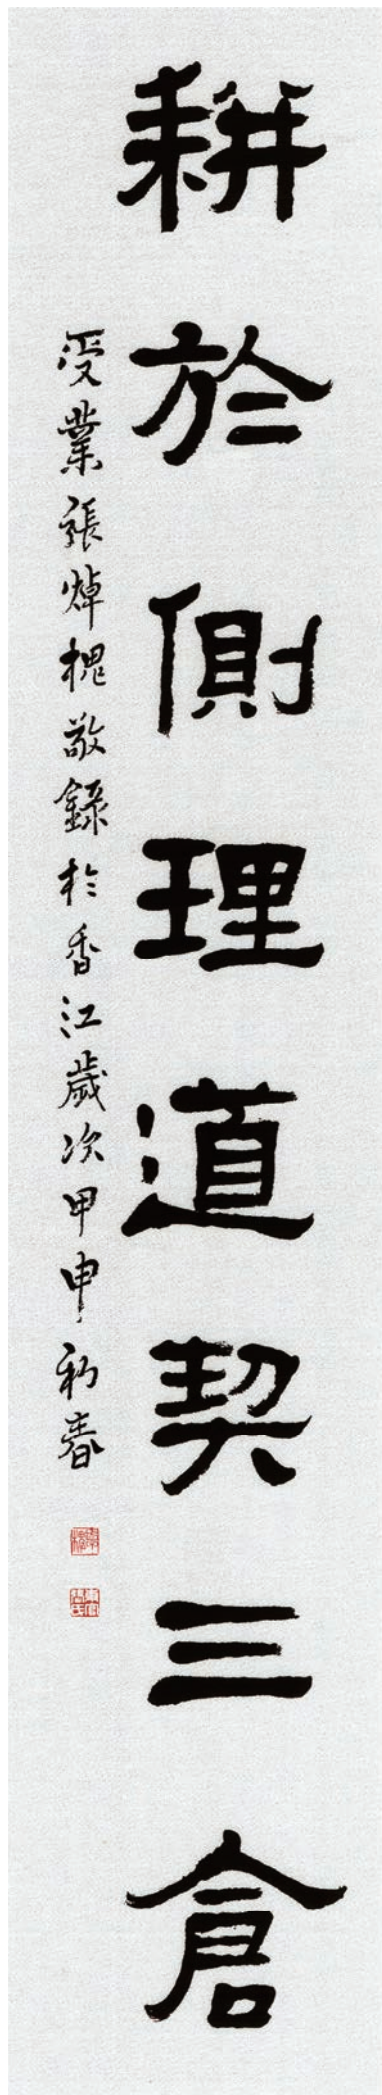 耕於側理道契三倉
受業張焯槐敬錄於香江歲次甲申初春